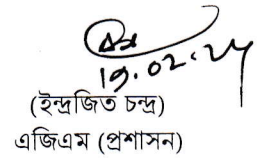 19.02.24
(ইন্দ্রজিত চন্দ্র)
এজিএম (প্রশাসন)